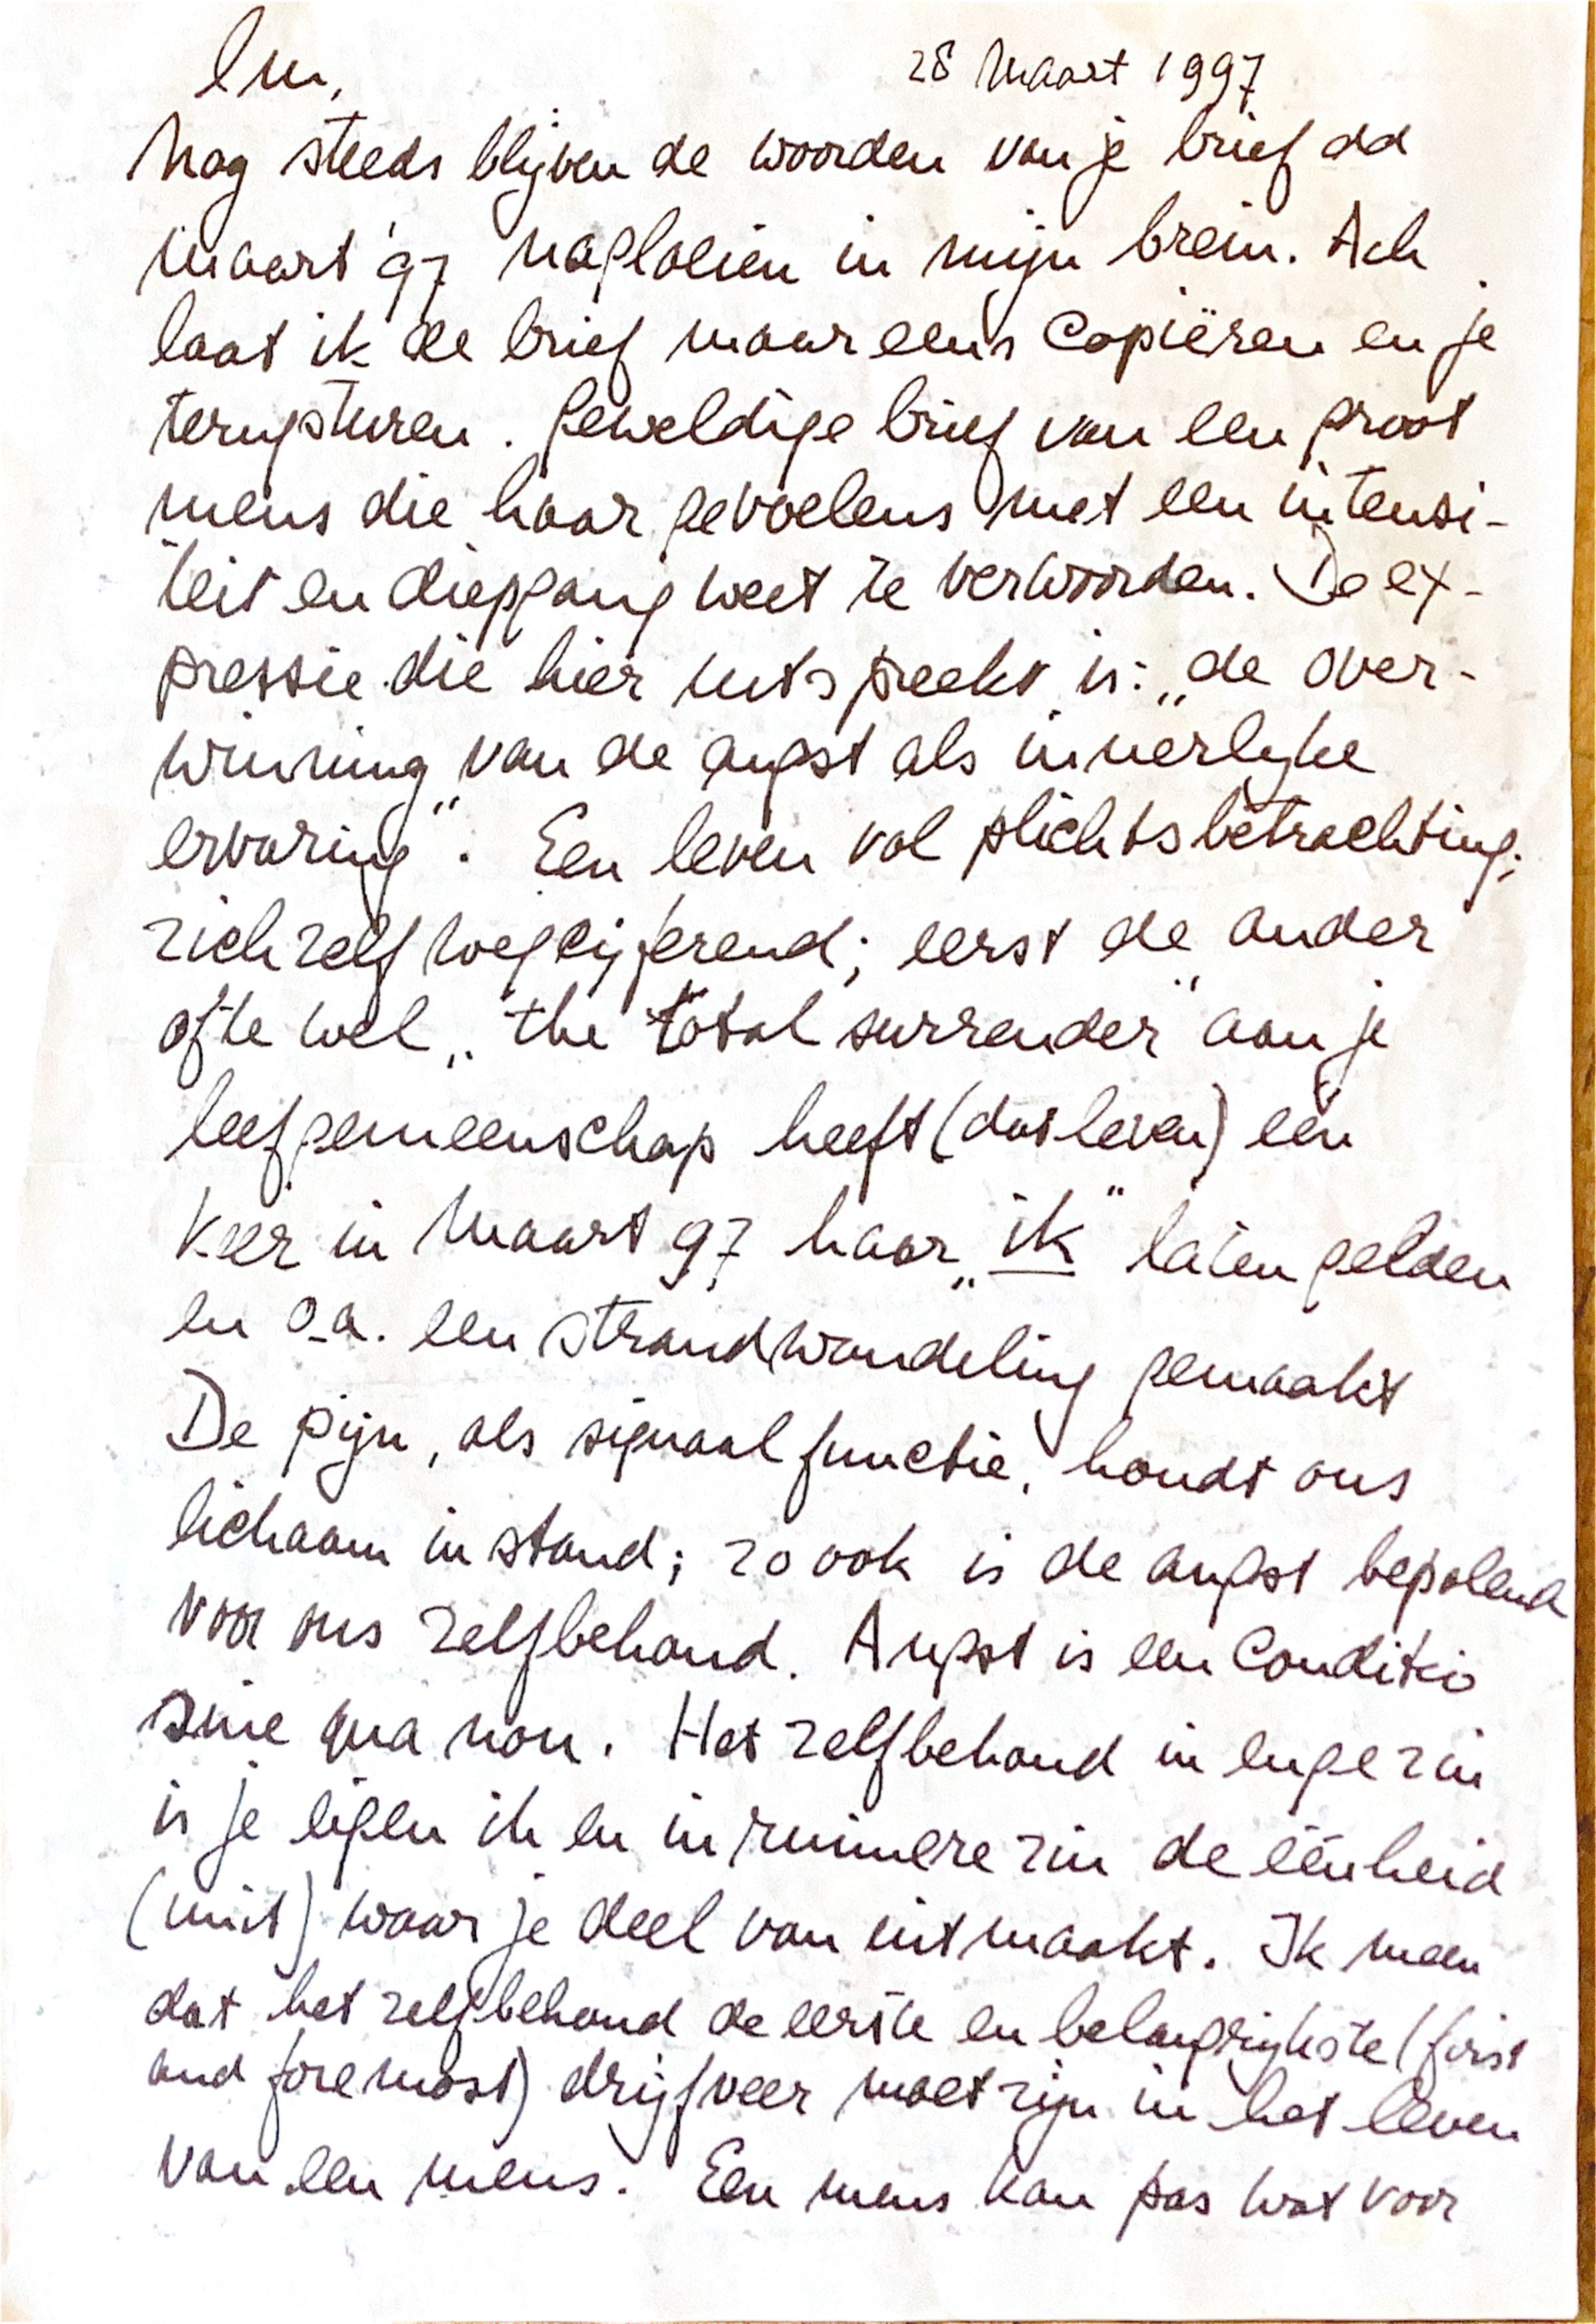 28 Maart 1997
Nog steeds blijven de woorden van je brief dd
maart '97 nagloeien in mijn brein. Ach
laat ik de brief maar eens Copiëren en je
terugsturen. Geweldige brief van een groot
mens die haar gevoelens met een intensi-
teit en diepgang weet te verwoorden. De ex-
pressie die hier uitspreekt is: „de over-
winning" van de angst als innerlijke
ervaring". Een leven vol plichtsbetrachting;
zichzelf wegcijferend; eerst de ander
ofte wel „the total surrender" aan je
leefgemeenschap heeft (dat leven) één
keer in Maart 97 haar „ik" laten gelden
en o.a. een strandwandeling gemaakt
De pijn, als signaalfunctie, houdt ons
lichaam in stand; zo ook is de angst bepalend
voor ons zelfbehoud. Angst is een Conditio
sine qua non. Het zelfbehoud in enge zin
is je eigen ik en in ruimere zin de éénheid
(unit) waar je deel van uitmaakt. Ik meen
dat het zelfbehoud de eerste en belangrijkste (first
and foremost) drijfveer moet zijn in het leven
van een mens. Een mens kan pas wat voor